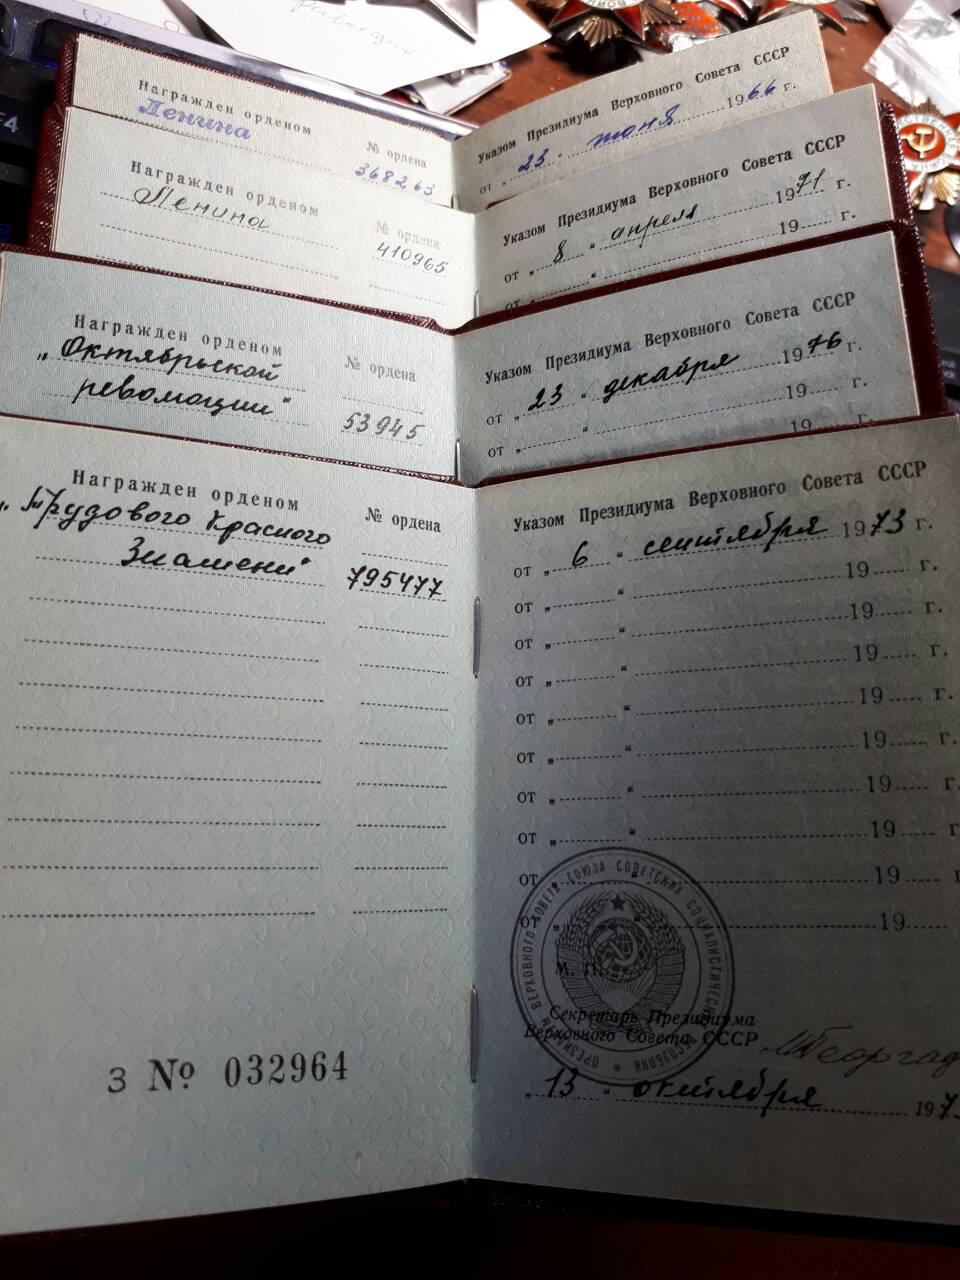 F4
Награжден орденом
№ ордена
Ленина
368263
Указом Президиума Верховного Совета СССР
от „ 23 " июня 1966 г.
Награжден орденом
№ ордена
Ленина
410965
Указом Президиума Верховного Совета СССР
от „ 8 " апреля 1971 г.
от „ " 19 г.
Награжден орденом
№ ордена
„Октябрьской
революции"
53945
Указом Президиума Верховного Совета СССР
от „ 23 " декабря 1976 г.
от „ " 19 г.
19
Награжден орденом
№ ордена
„Трудового Красного
Знамени"
795477
З № 032964
Указом Президиума Верховного Совета СССР
от „ 6 " сентября 1973 г.
от „ " 19 г.
от „ " 19 г.
от „ " 19 г.
от „ " 19 г.
от „ " 19 г.
от „ " 19 г.
от „ " 19 г.
от „ " 19 г.
от „ " 19
М. П.
ПРЕЗИДИУМ ВЕРХОВНОГО СОВЕТА СОЮЗА СОВЕТСКИХ СОЦИАЛИСТИЧЕСКИХ РЕСПУБЛИК
Секретарь Президиума
Верховного Совета СССР
М Георгад
„ 13 " октября 197